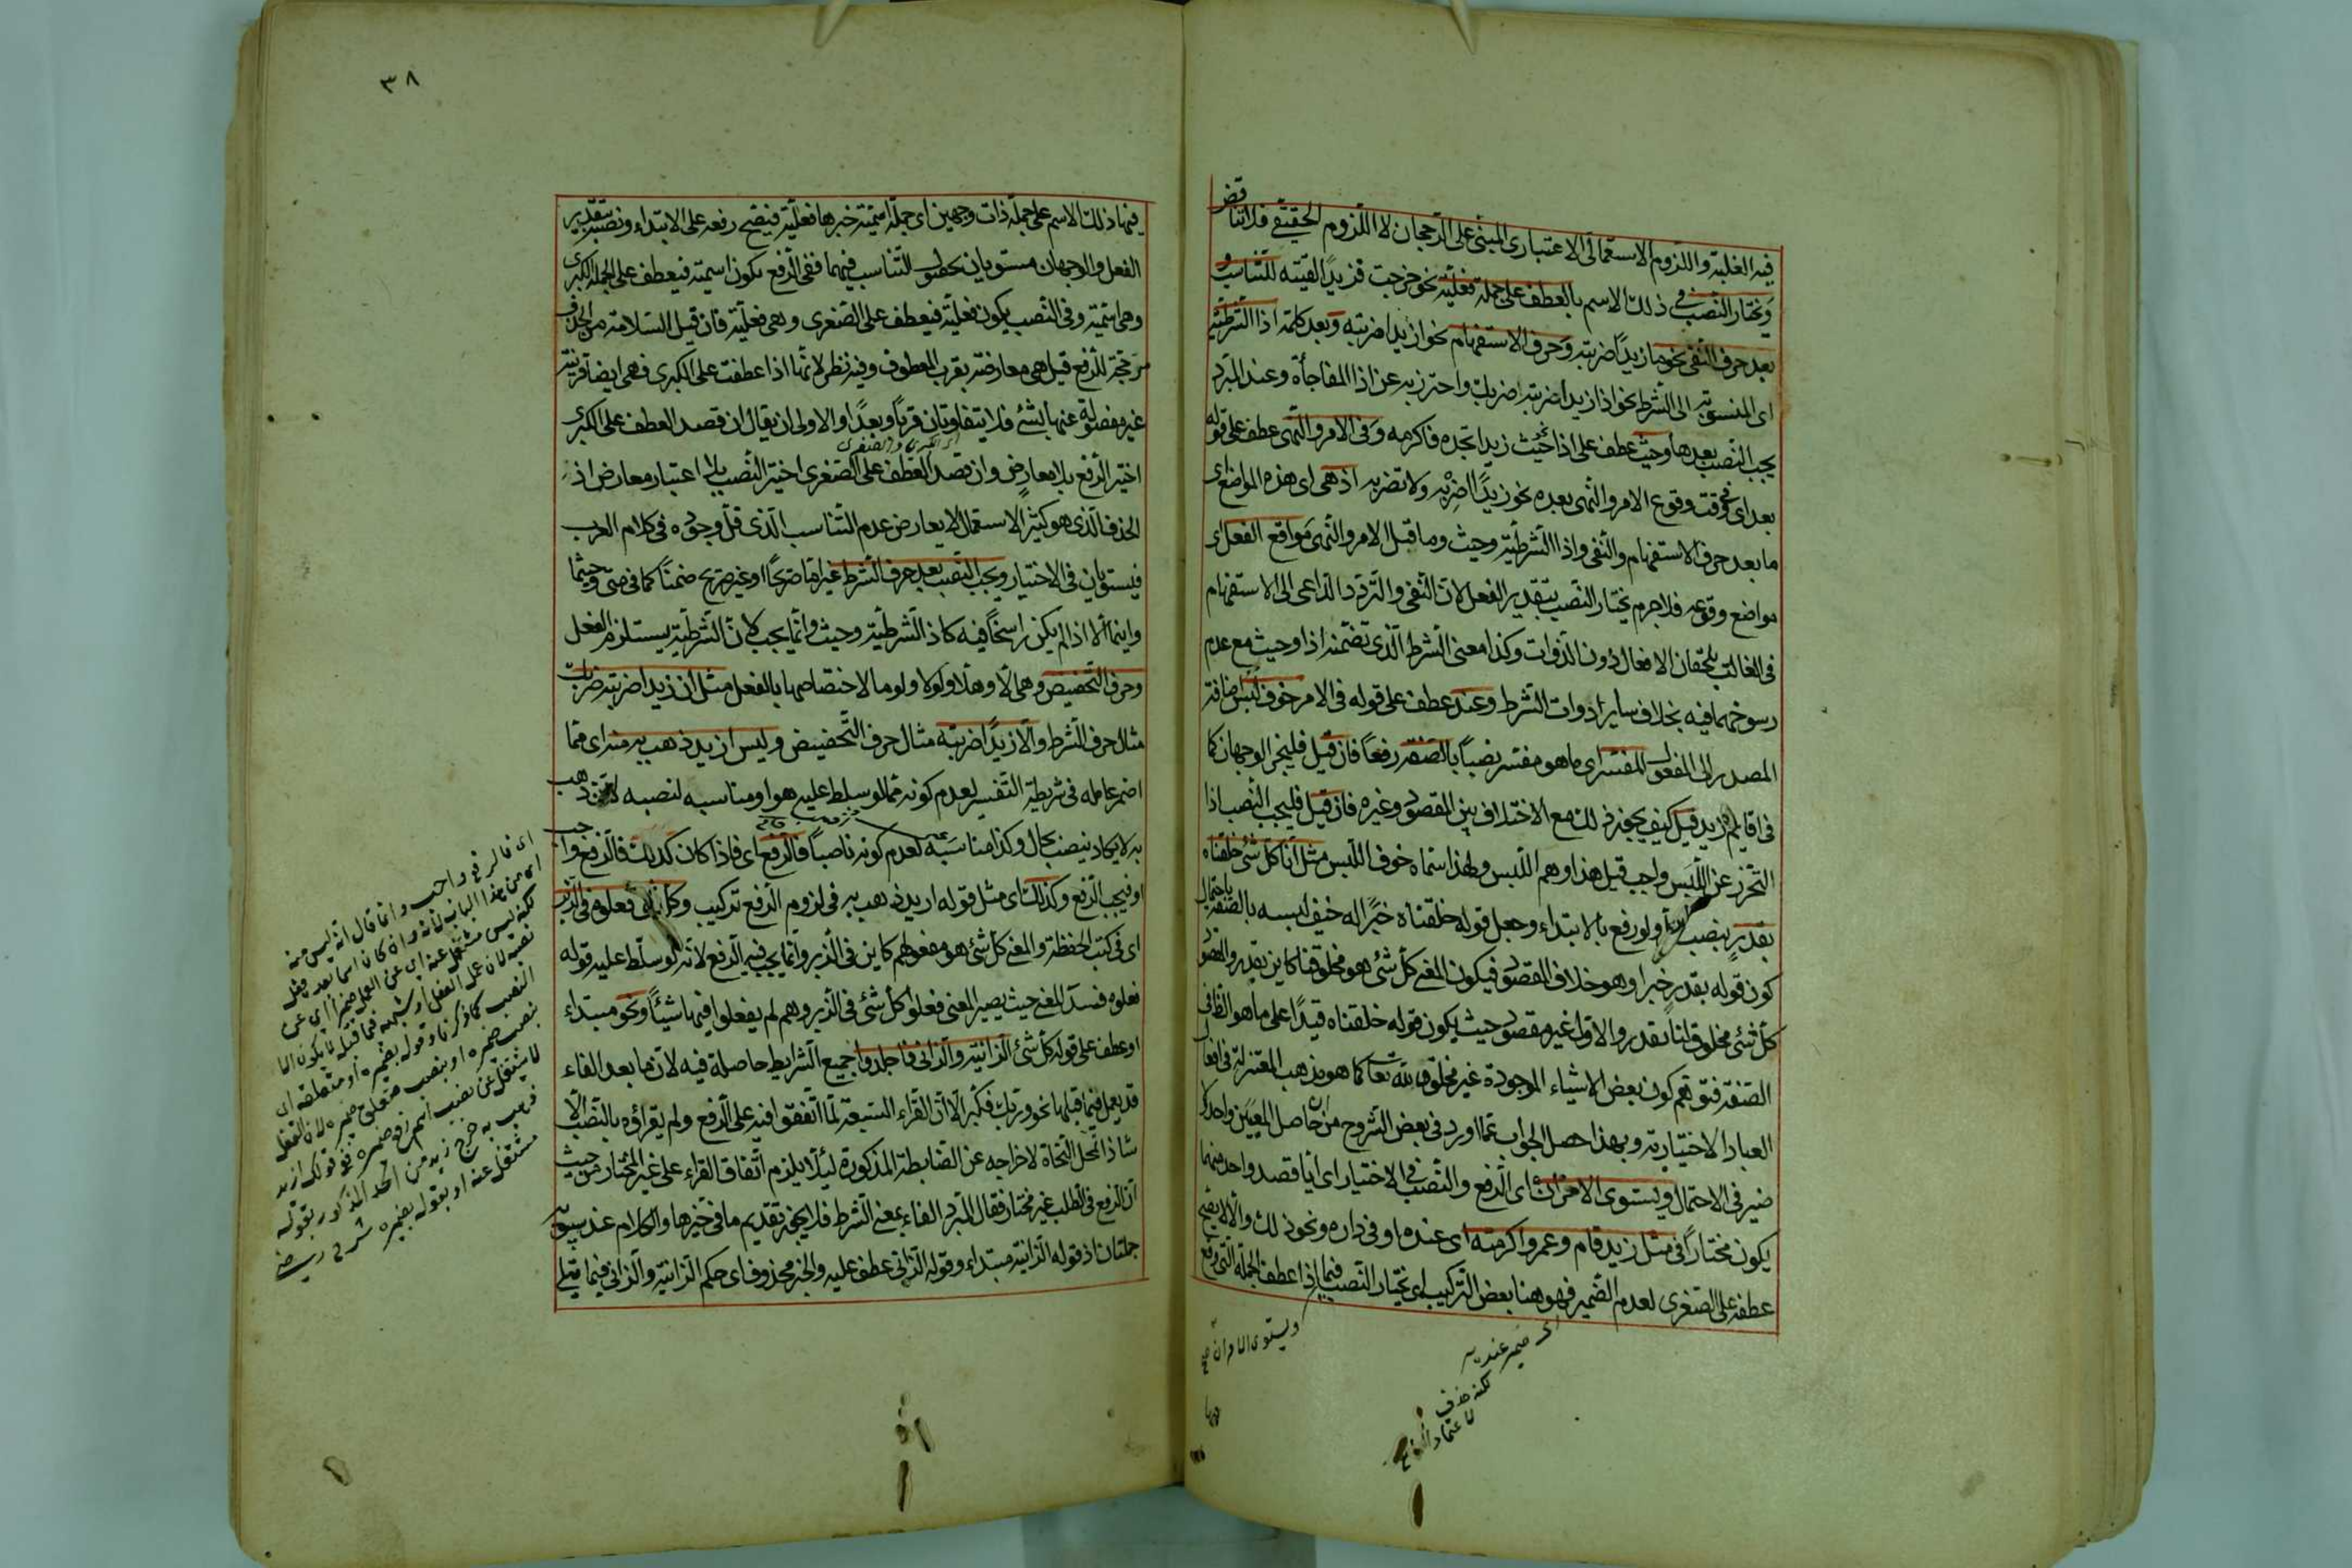 فيه الغلبة واللزوم الاستعمالى الاعتبارى المبنى على الرجحان لا اللزوم الحقيقى فلا تناقض
ويختار النصب فى ذلك الاسم بالعطف على جملة فعلية نحو خرجت فزيدا لقيته للتناسب و
بعد حرف النفى نحو ما زيدا ضربته وحرف الاستفهام نحو ازيدا ضربته وبعد كلمة اذا الشرطية
اى المنسوبة الى الشرط نحو اذا زيدا ضربته ضربك واحترز به عن اذا المفاجأة وعند المبرد
يجب النصب بعدها وحيث عطف على اذا نحو حيث زيدا تجده فاكرمه وفى الامر والنهى عطف على قوله
بعد اى فى وقت وقوع الامر والنهى بعده نحو زيدا اضربه ولا تضربه اذ هى اى هذه المواضع اى
ما بعد حرف الاستفهام والنفى واذا الشرطية وحيث وما قبل الامر والنهى مواقع الفعل اى
مواضع وقوعه فلا جرم يختار النصب بتقدير الفعل لان النفى والتردد الداعى الى الاستفهام
فى الغالب يلحقان الافعال دون الذوات وكذا معنى الشرط الذى تضمنه اذا وحيث مع عدم
رسوخهما فيه بخلاف ساير ادوات الشرط وعند عطف على قوله فى الامر خوف لبس اضافة
المصدر الى المفعول المفسر اى ما هو مفسر نصبا بالصفة رفعا فان قيل فليجز الوجهان كما
فى اقايم زيد قيل كيف يجوز ذلك مع الاختلاف بين المقصود وغيره فان قيل فليجب النصب اذا
التحرز عن اللبس واجب قيل هذا وهم اللبس ولهذا سماه خوف اللبس مثل انا كل شئ خلقناه
بقدر بنصب كل ولو رفع بالابتداء وجعل قوله خلقناه خبرا له خيف لبسه بالصفة باحتمال
كون قوله بقدر خبرا وهو خلاف المقصود فيكون المعنى كل شئ هو مخلوقنا كاين بقدر والمقصود
كل شئ مخلوق لنا بقدر والاول غير مقصود حيث يكون قوله خلقناه قيدا على ما هو الظاهر فى
الصفة فتوهم كون بعض الاشياء الموجودة غير مخلوق لله تعا كما هو مذهب المعتزلة فى افعال
العباد الاختيارية وبهذا حصل الجواب عما اورد فى بعض الشروح من ان حاصل المعنيين واحد لا
ضير فى الاحتمال ويستوى الامران اى الرفع والنصب فى الاختيار اى ايا قصد واحد منهما
يكون مختارا فى مثل زيد قام وعمرو اكرمته اى عنده او فى داره ونحو ذلك والا لا يصح
عطفه على الصغرى لعدم الضمير فهو هنا بعض التركيب اى يختار النصب فيما اذا عطف الجملة التى وقع
ويستوى الامران
اى ضمير عنديه
لكنه حذف
لاعتماد
٣٨
فيها ذلك الاسم على جملة ذات وجهين اى جملة اسمية خبرها فعلية فيصح رفعه على الابتداء ونصبه بتقدير
الفعل والوجهان مستويان لحصول التناسب فيهما ففى الرفع يكون اسمية فيعطف على الجملة الكبرى
وهى اسمية وفى النصب يكون فعلية فيعطف على الصغرى وهى فعلية فان قيل السلامة من الحذف
مرجحة للرفع قيل هى معارضة بقرب المعطوف وفيه نظر لانها اذا عطفت على الكبرى فهى ايضا قريبة
غير مفصولة عنها بشئ فلا يتفاوتان قربا وبعدا والاولى ان يقال ان قصد العطف على الكبرى
اى الكبرى والصغرى
اختير الرفع بلا معارض وان قصد العطف على الصغرى اختير النصب بلا اعتبار معارض اذ
الحذف الذى هو كثير الاستعمال لا يعارض عدم التناسب الذى قل وجوده فى كلام العرب
فيستويان فى الاختيار ويجب النصب بعد حرف الشرط غير اما صريحا او غير صريح ضمنا كما فى متى وحيثما
واينما الا اذا لم يكن راسخا فيه كاذا الشرطية وحيث وانما يجب لان الشرطية يستلزم الفعل
وحرف التحضيض وهى الا وهلا ولولا ولوما لاختصاصها بالفعل مثل ان زيدا ضربته ضربك
مثال حرف الشرط والا زيدا ضربته مثال حرف التحضيض وليس ازيد ذهب به منه اى مما
اضمر عامله فى شريطة التفسير لعدم كونه مما لو سلط عليه هو او مناسبه لنصبه لان ذهب
به لا يكاد ينصب بحال وكذا مناسبه لعدم كونه ناصبا فالرفع اى فاذا كان كذلك فالرفع واجب
او فيجب الرفع وكذلك اى مثل قوله ازيد ذهب به فى لزوم الرفع تركيب وكل شئ فعلوه فى الزبر
اى فى كتب الحفظة والمعنى كل شئ هو مفعولهم كاين فى الزبر وانما يجب فيه الرفع لانه لو سلط عليه قوله
فعلوه فسد المعنى حيث يصير المعنى فعلوا كل شئ فى الزبر وهم لم يفعلوا فيها شيئا ونحو مبتداء
او عطف على قوله كل شئ الزانية والزانى فاجلدوا جميع الشرايط حاصلة فيه لان ما بعد الفاء
قد يعمل فيما قبلها نحو وربك فكبر الا ان القراء السبعة لما اتفقوا فيه على الرفع ولم يقراؤه بالنصب الا
شاذا تمحل النحاة لاخراجه عن الضابطة المذكورة ليئلا يلزم اتفاق القراء على غير المختار من حيث
ان الرفع فى الطلب غير مختار فقال المبرد الفاء بمعنى الشرط فلا يجوز تقديم ما فى خبرها والكلام عند سيبويه
جملتان اذ قوله الزانية مبتداء وقوله الزانى عطف عليه والخبر محذوف اى حكم الزانية والزانى فيما يتلى
اى فالرفع واجب وانما قال انه ليس منه
اى من هذا الباب لانه وان كان اسما بعده فعل
لكنه ليس مشتغل عنه اى عن العمل